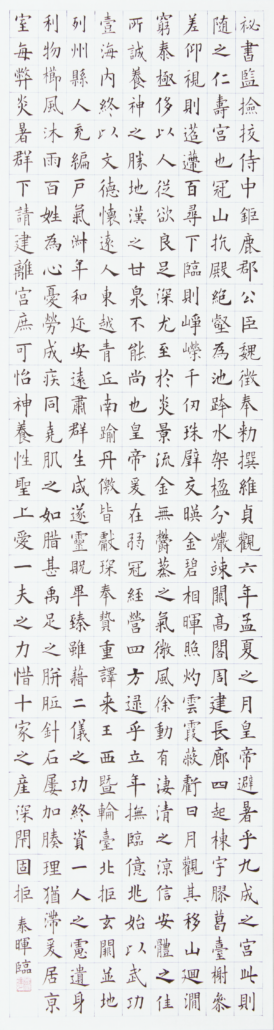 祕書監撿挍侍中鉅鹿郡公臣魏徵奉勑撰維貞觀六年孟夏之月皇帝避暑乎九成之宮此則
隨之仁壽宮也冠山抗殿絕壑為池跨水架楹分巖竦闕高閣周建長廊四起棟宇膠葛臺榭參
差仰視則迢遰百尋下臨則崢嶸千仞珠璧交暎金碧相暉照灼雲霞蔽虧日月觀其移山迴澗
窮泰極侈以人從欲良足深尤至於炎景流金無鬱蒸之氣微風徐動有淒清之涼信安體之佳
所誠養神之勝地漢之甘泉不能尚也皇帝爰在弱冠經營四方逮乎立年撫臨億兆始以武功
壹海內終以文德懷遠人東越青丘南踰丹儌皆獻琛奉贄重譯来王西暨輪臺北拒玄闕並地
列州縣人充編戶氣淑年和迩安遠肅群生咸遂靈貺畢臻雖藉二儀之功終資一人之慮遺身
利物櫛風沐雨百姓為心憂勞成疾同堯肌之如腊甚禹足之胼胝針石屢加腠理猶滯爰居京
室每弊炎暑群下請建離宮庶可怡神養性聖上愛一夫之力惜十家之產深閇固拒
暉臨